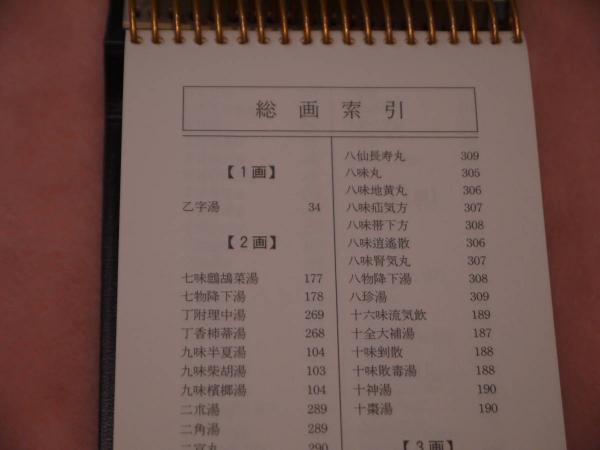 総画索引
【1画】
乙字湯 34
【2画】
七味鷓鴣菜湯 177
七物降下湯 178
丁附理中湯 269
丁香柿蒂湯 268
九味半夏湯 104
九味柴胡湯 103
九味檳榔湯 104
二朮湯 289
二角湯 289
二宜丸 290
八仙長寿丸 309
八味丸 305
八味地黄丸 306
八味疝気方 307
八味帯下方 308
八味逍遙散 306
八味腎気丸 307
八物降下湯 308
八珍湯 309
十六味流気飲 189
十全大補湯 187
十味剉散 188
十味敗毒湯 188
十神湯 190
十棗湯 190
【3画】